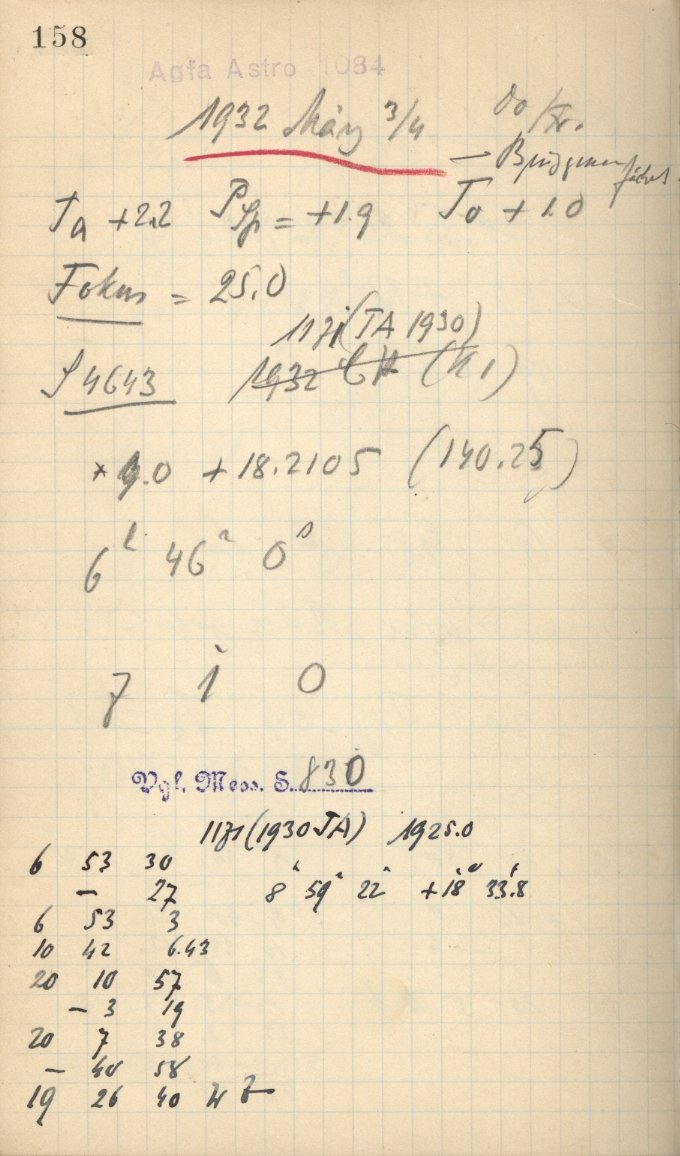 158
Agfa Astro 1084
1932 März 3/4
Ta +2.2 = +1.9 To +1.0
Fokus = 25.0
1171 (TA 1930)
S 4643 1932 (K1)
* 9.0 +18.2105 (140.25)
6h 46m 0s
7 1 0
Vgl. Mess. S. 830
1171 (1930 TA) 1925.0
6 53 30
— 27 8h 59m 22s +18° 33'.8
6 53 3
10 42 6.43
20 10 57
— 3 19
20 7 38
— 40 58
19 26 40